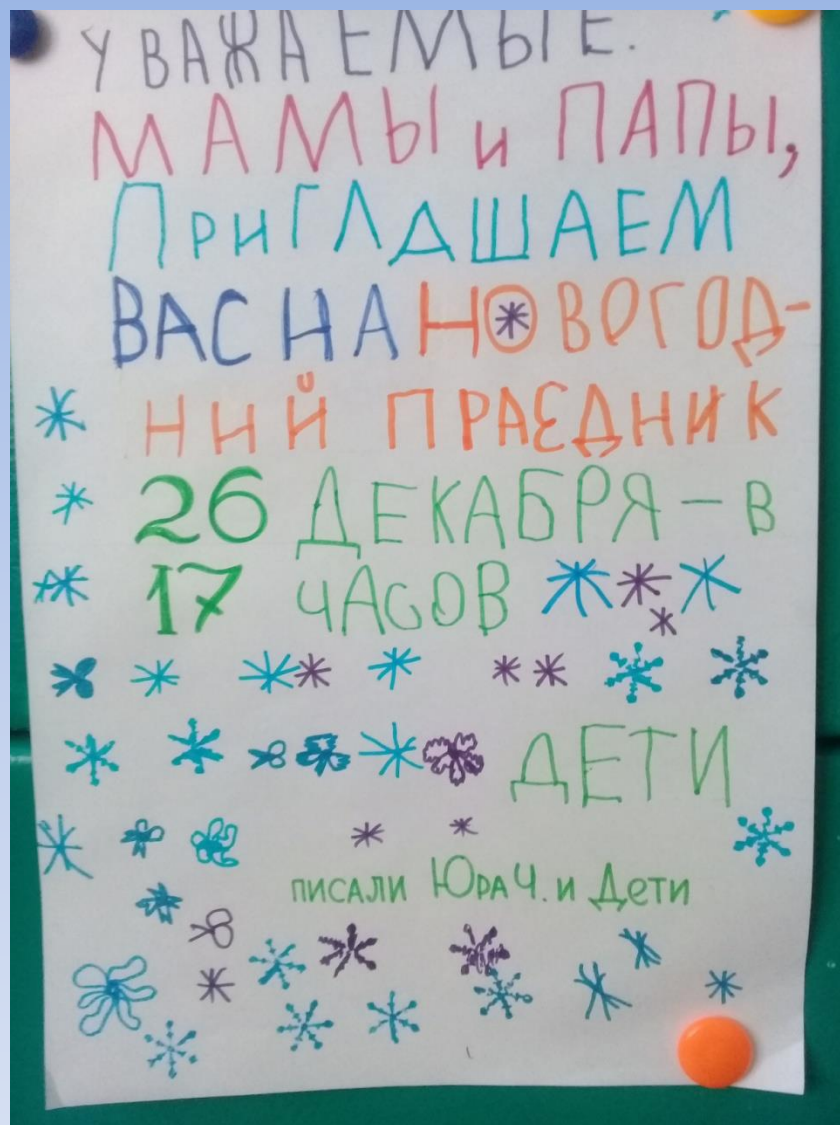 УВАЖАЕМЫЕ.
МАМЫ и ПАПЫ,
ПРИГЛАШАЕМ
ВАС НА НОВОГОД-
НИЙ ПРАЗДНИК
26 ДЕКАБРЯ – В
17 ЧАСОВ
ДЕТИ
ПИСАЛИ ЮРА Ч. И ДЕТИ